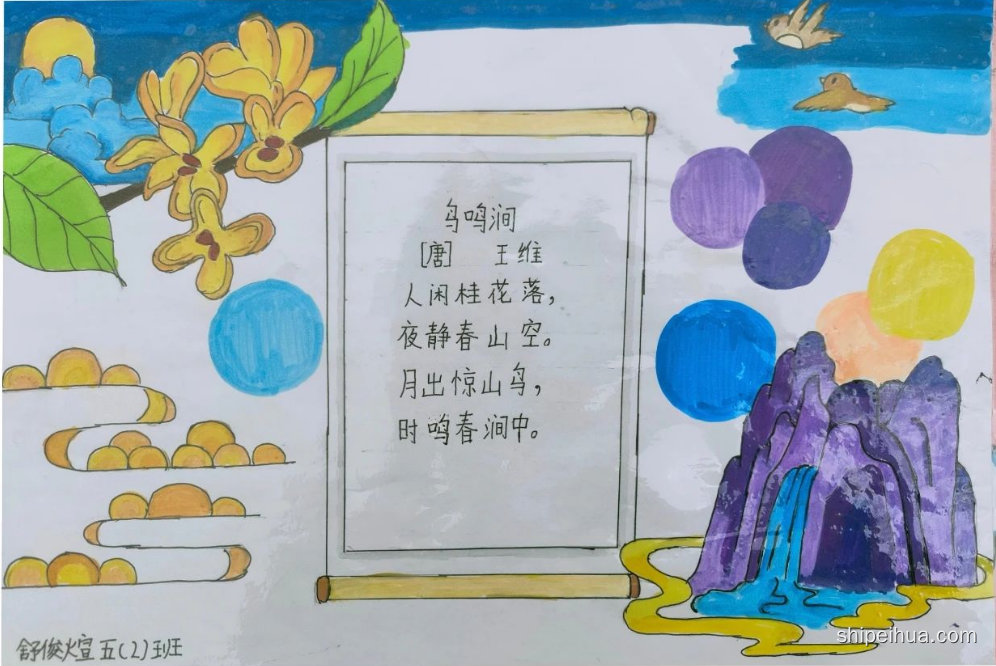 鸟鸣涧
[唐] 王维
人闲桂花落，
夜静春山空。
月出惊山鸟，
时鸣春涧中。
舒俊煊 五(2)班
shipeihua.com